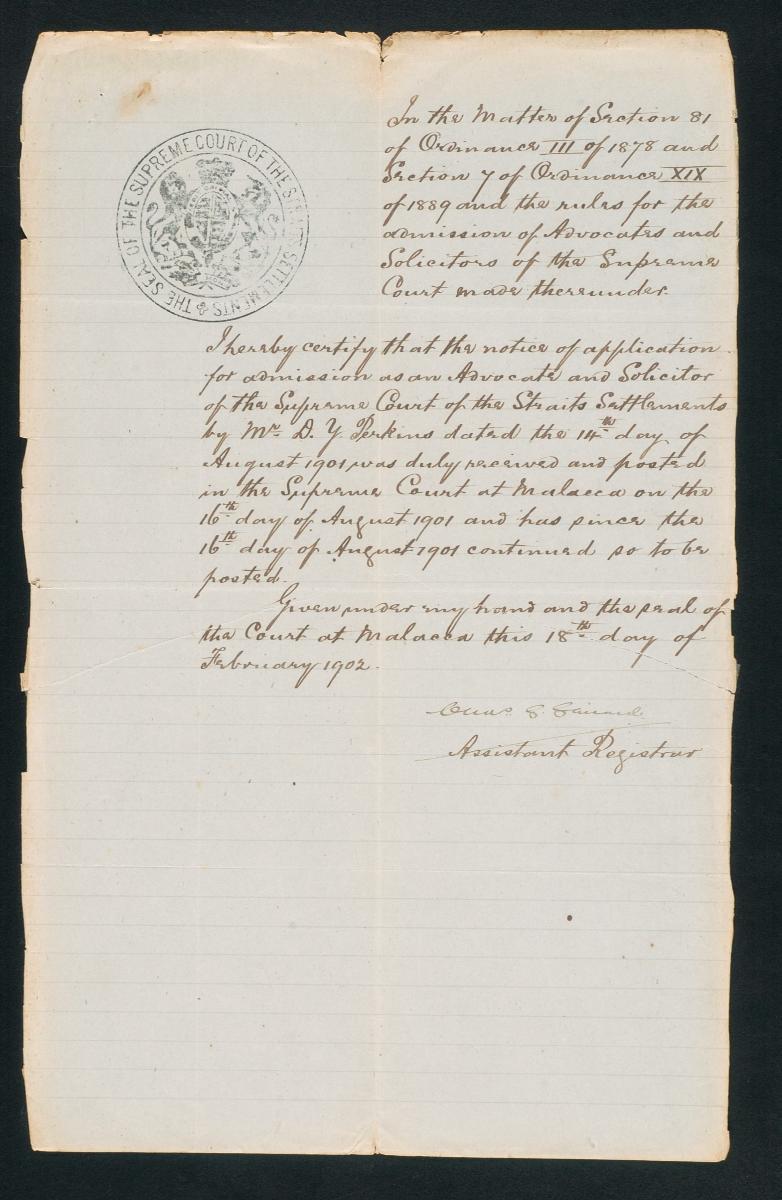 THE SEAL OF THE SUPREME COURT OF THE STRAITS SETTLEMENTS
In the Matter of Section 81
of Ordinance III of 1878 and
Section 7 of Ordinance XIX
of 1889 and the rules for the
admission of Advocates and
Solicitors of the Supreme
Court made thereunder.
I hereby certify that the notice of application
for admission as an Advocate and Solicitor
of the Supreme Court of the Straits Settlements
by Mr. D. Y. Perkins dated the 14th day of
August 1901 was duly received and posted
in the Supreme Court at Malacca on the
16th day of August 1901 and has since the
16th day of August 1901 continued so to be
posted.
Given under my hand and the seal of
the Court at Malacca this 18th day of
February 1902.
Assistant Registrar